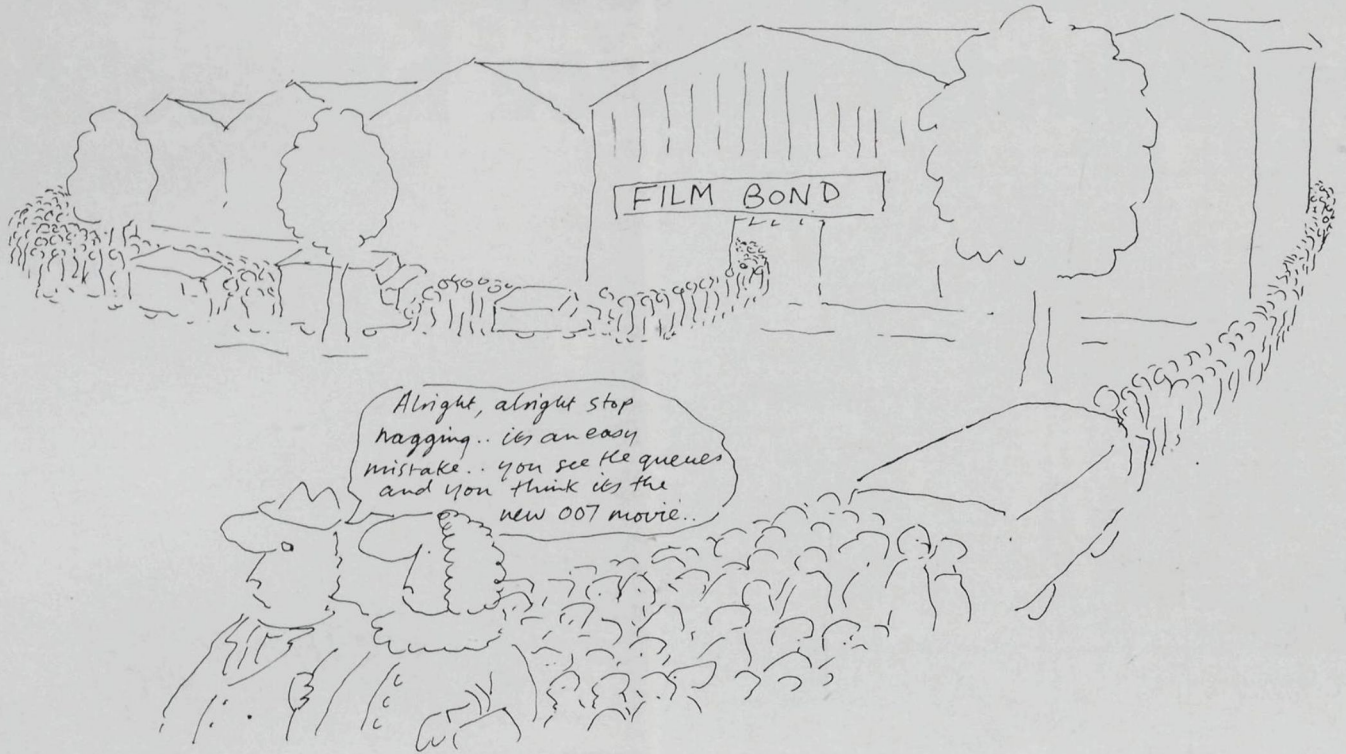 FILM BOND
Alright, alright stop
nagging.. its an easy
mistake.. you see the queues
and you think its the
new 007 movie..